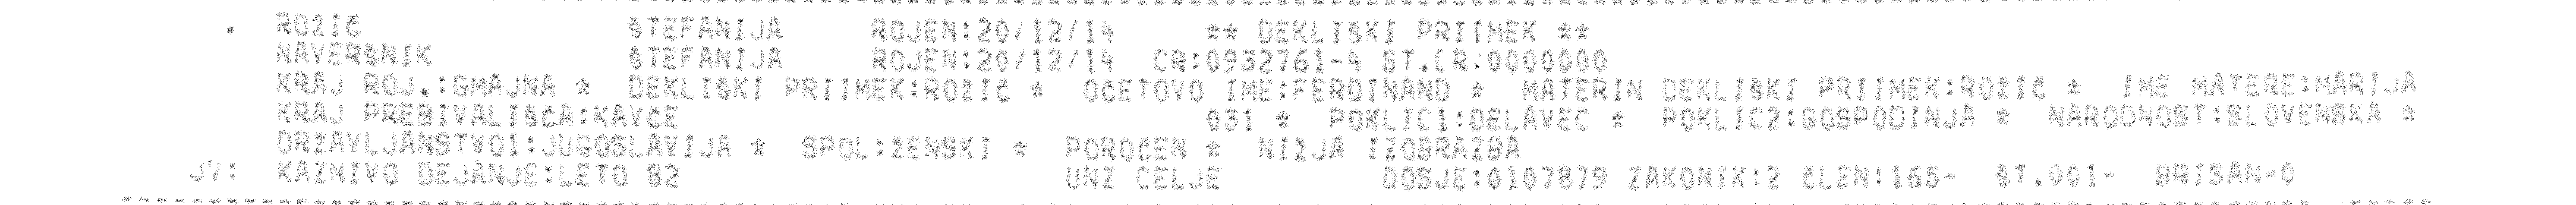 . ROŽIČ ŠTEFANIJA ROJEN:20/12/14 ** DEKLIŠKI PRIIMEK **
NAVERŠNIK ŠTEFANIJA ROJEN:20/12/14 CR:0932761-4 ST.CR:0000000
KRAJ ROJ.:GMAJNA * DEKLIŠKI PRIIMEK:ROŽIČ * OČETOVO IME:FERDINAND * MATERIN DEKLIŠKI PRIIMEK:ROŽIČ * IME MATERE:MARIJA
KRAJ PREBIVALIŠČA:KAVČE 031 * POKLIC1:DELAVEC * POKLIC2:GOSPODINJA * NARODNOST:SLOVENSKA *
DRŽAVLJANSTVO1:JUGOSLAVIJA * SPOL:ŽENSKI * POROČEN * NIŽJA IZOBRAZBA
JV: KAZNIVO DEJANJE:LETO 82 UNZ CELJE DOSJE:0107879 ZAKONIK:2 ČLEN:165- ŠT.001- BRISAN-0